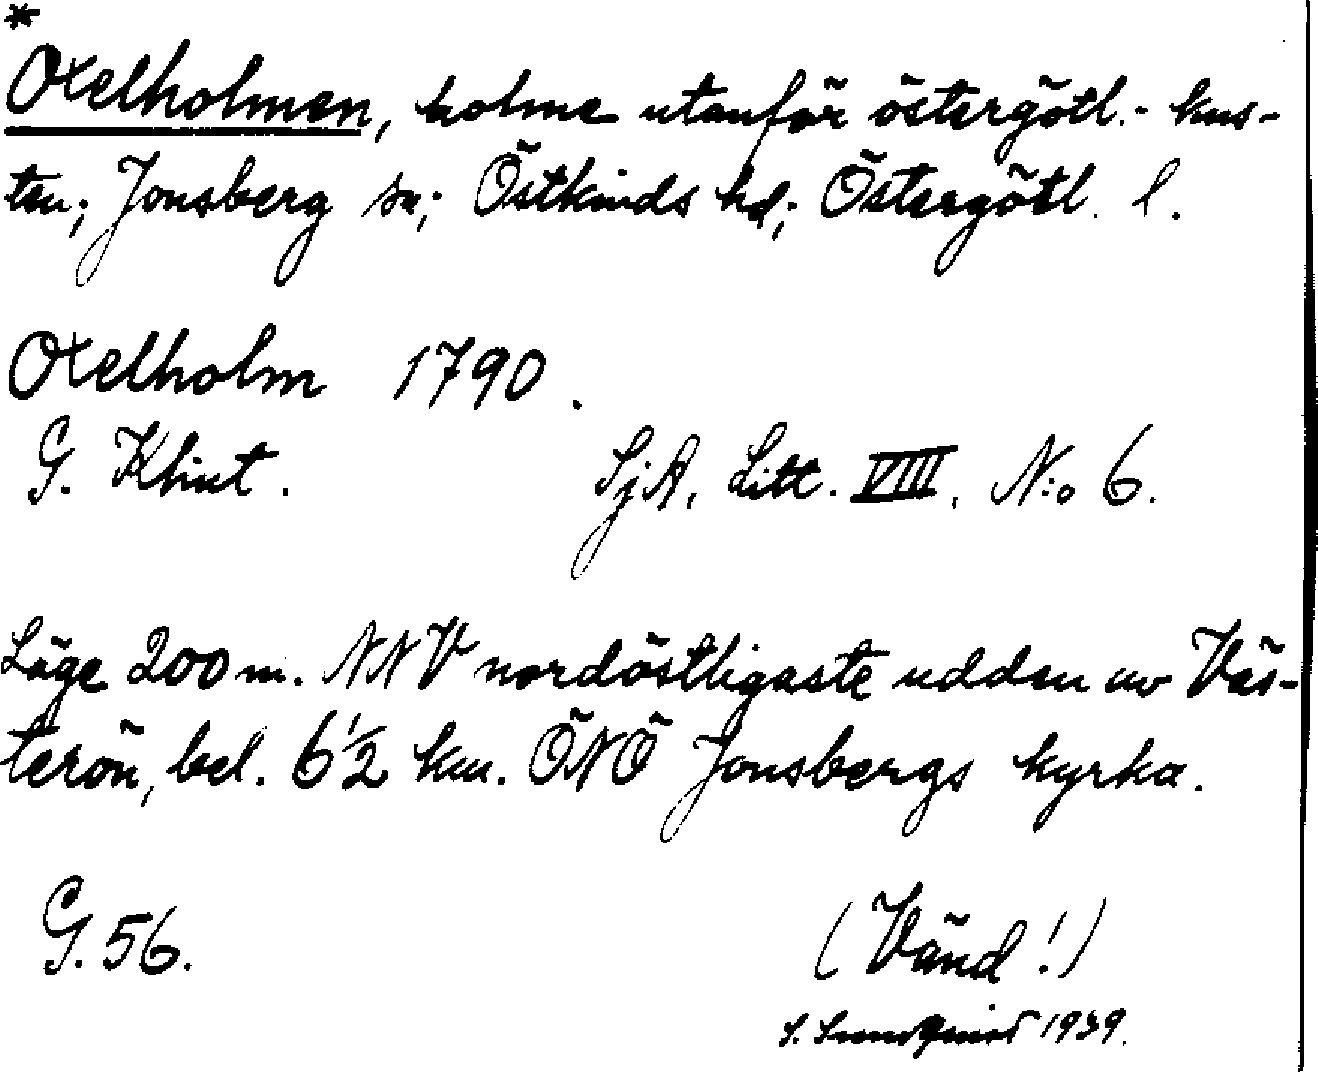 *
Oxelholmen, holme utanför östergötl.- kus-
ten; Jonsberg sn; Östkinds hd; Östergötl. l.
Oxelholm 1790.
G. Klint. SjA, Litt. VIII, N:o 6.
Läge 200 m. NNV nordöstligaste udden av Väs-
terön, bel. 6½ km. ÖNÖ Jonsbergs kyrka.
G. 56. (Vänd!)
S. Lundqvist 1939.